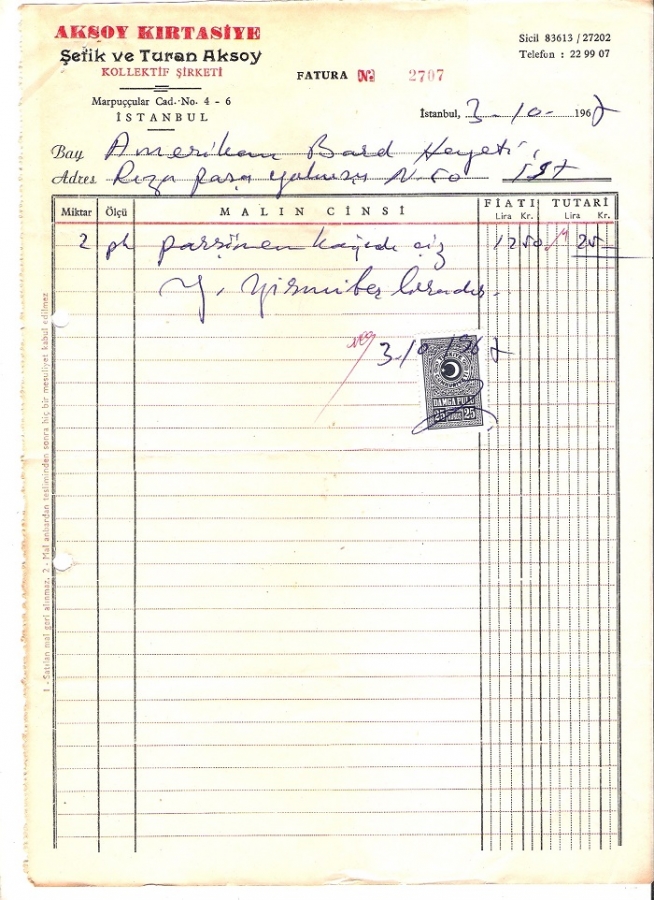 AKSOY KIRTASİYE
Şefik ve Turan Aksoy
KOLLEKTİF ŞİRKETİ
Marpuççular Cad. No. 4 - 6
İSTANBUL
FATURA No 2707
Sicil 83613 / 27202
Telefon : 22 99 07
İstanbul, 3-10-1967
Bay Amerikan Bord Heyeti,
Adres Rıza paşa yokuşu N. 50 İST
Miktar Ölçü MALIN CİNSİ FİATI TUTARI
Lira Kr. Lira Kr.
2 parşömen kağıdı çiz 12 50 25 —
Y. Yirmibeş liradır.
3-10-1967
DAMGA PULU
25 KURUŞ 25
1 - Satılan mal geri alınmaz. 2 - Mal anbardan tesliminden sonra hiç bir mesuliyet kabul edilmez